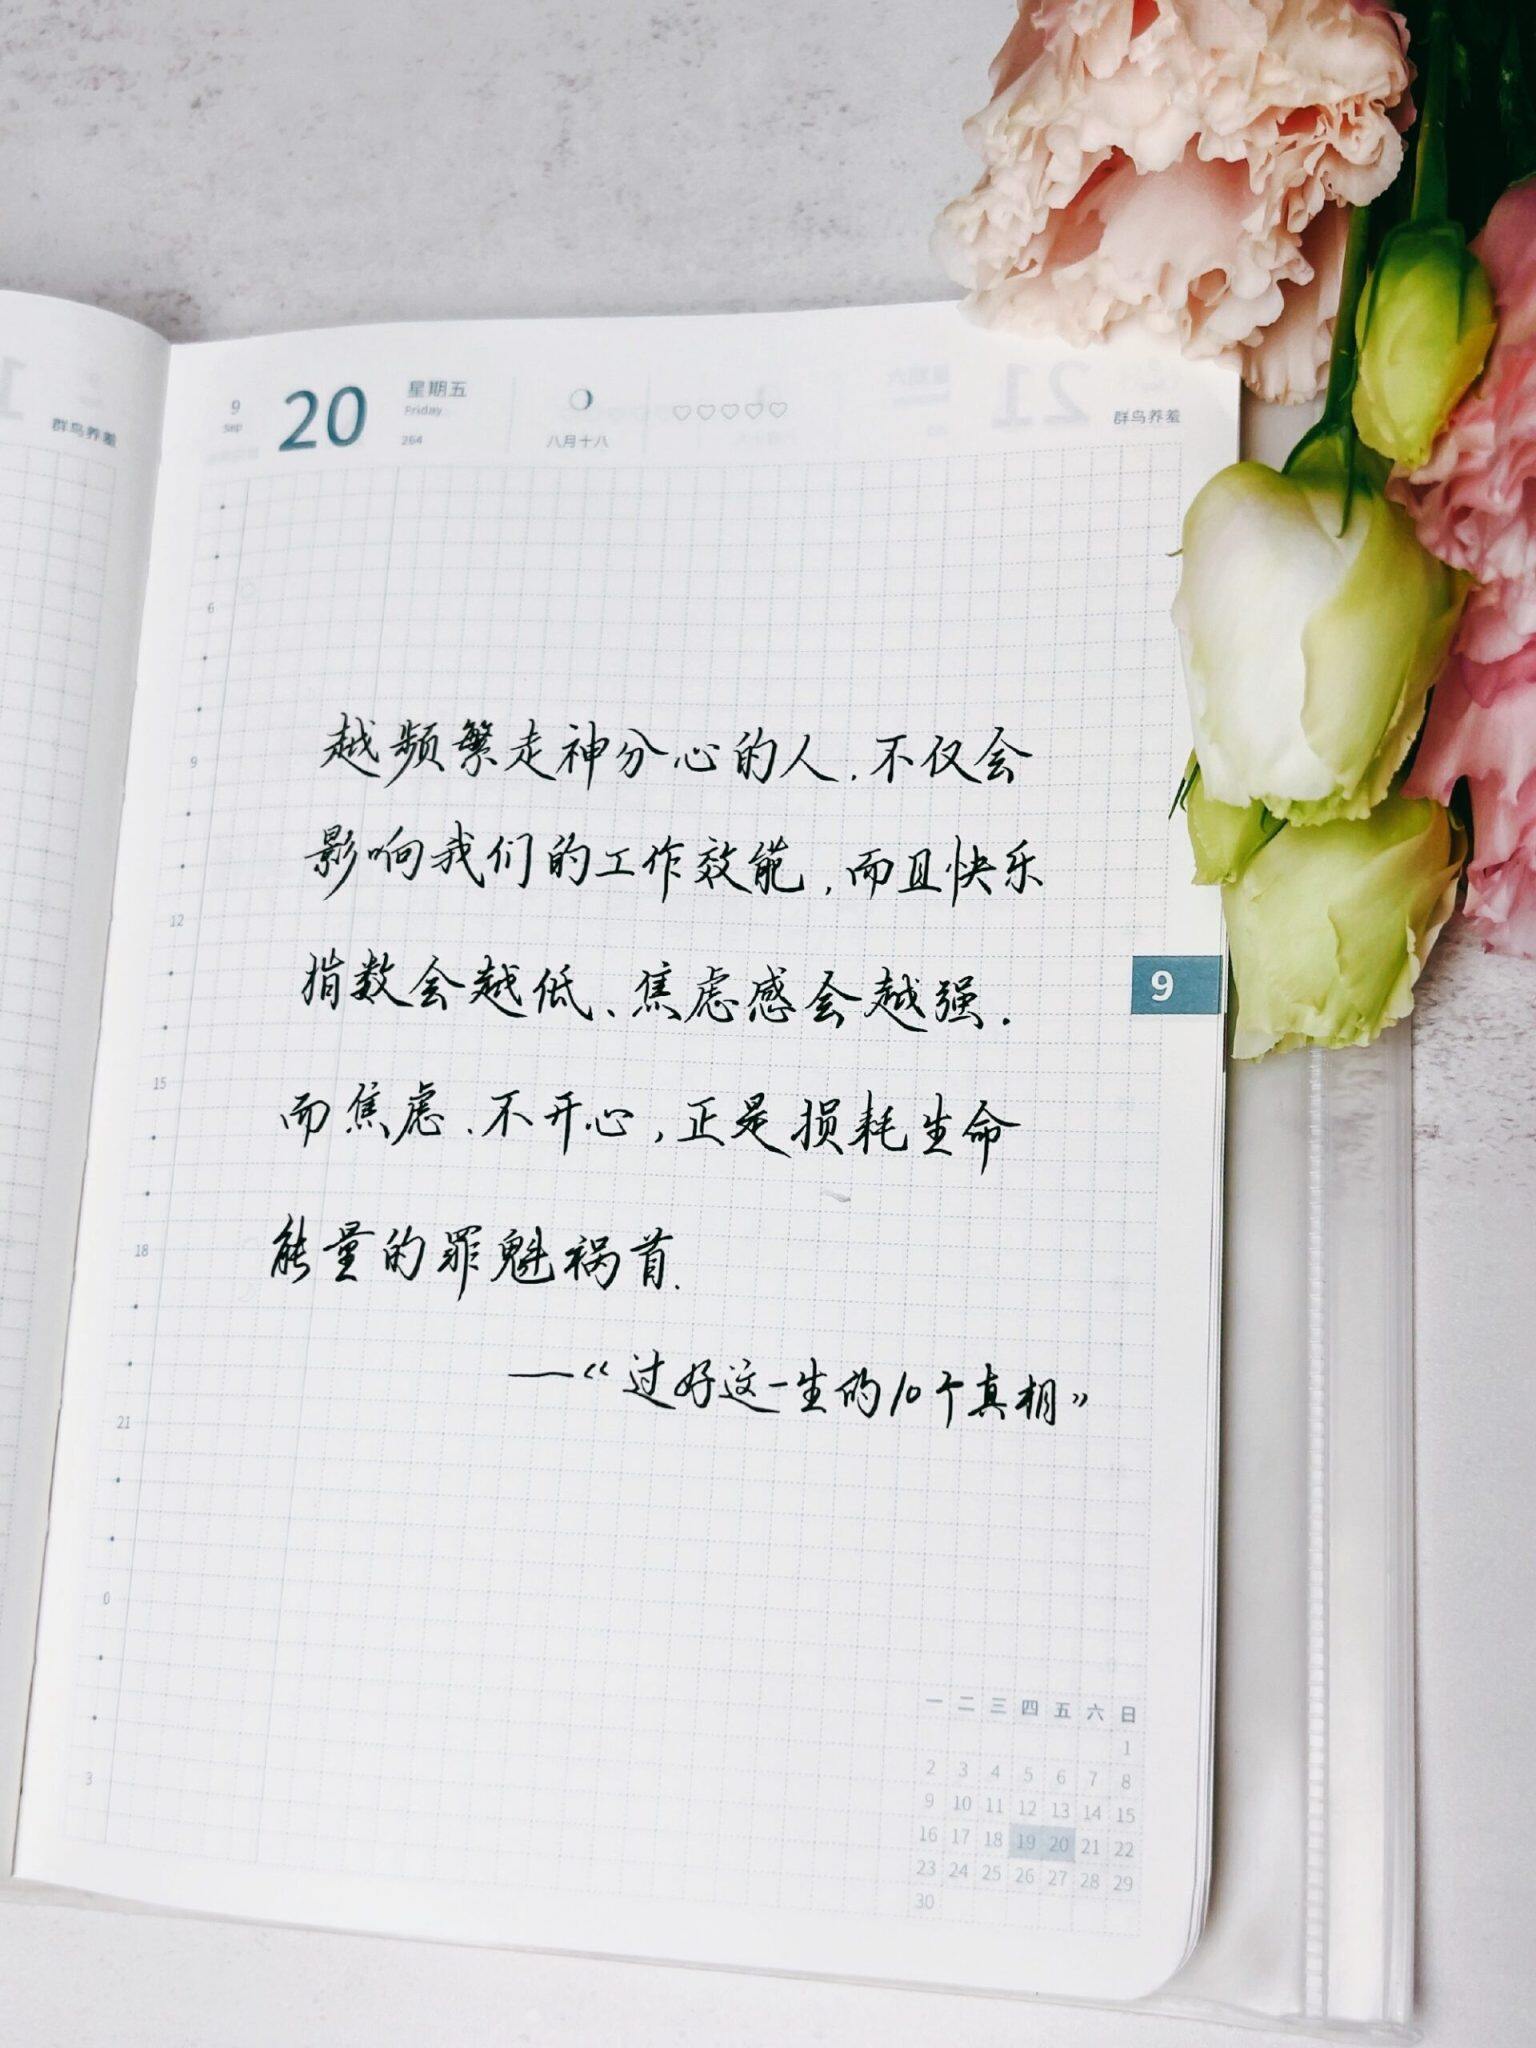 群鸟养羞
9
Sep
20
星期五
Friday
264
八月十八
群鸟养羞
6
9
12
15
18
21
0
3
越频繁走神分心的人,不仅会
影响我们的工作效能,而且快乐
指数会越低、焦虑感会越强.
而焦虑、不开心,正是损耗生命
能量的罪魁祸首.
——《过好这一生的10个真相》
9
一 二 三 四 五 六 日
1
2 3 4 5 6 7 8
9 10 11 12 13 14 15
16 17 18 19 20 21 22
23 24 25 26 27 28 29
30